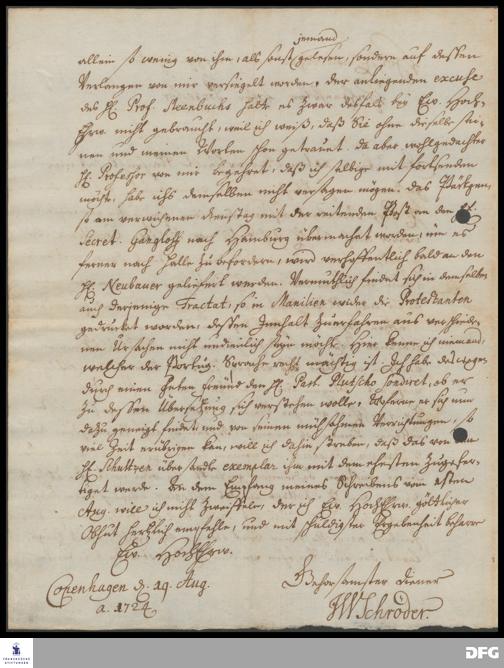 jemand
allein so wenig von ihm, als sonst gelesen, sondern auf dessen
Verlangen von mir versiegelt worden. der anliegenden excuse
des H. Prof. Steenbuchs hätte es zwar deshalb bey Ew. Hoch-
Ehrw. nicht gebraucht, weil ich weiß, daß Sie ohne dieselbe sei-
nen und meinen Worten schon getrauet. Da aber wohlgedachter
H. Professor von mir begehret, daß ich selbige mit fortsenden
möchte, habe ichs demselben nicht versagen mögen. Das Päckgen,
so am verwichenen Dienstag mit der reitenden Post an den H.
Secret. nach Hamburg übermachet worden, um es
ferner nach Halle zu befördern, wird verhoffentlich bald an den
H. Neubauer geliefert werden. Vermuthlich findet sich in demselben
auch derjenige Tractat, so in Manilien wider die Protestanten
gedrucket worden, dessen Innhalt zu erfahren aus verschiede-
nen Ursachen nicht undienlich seyn möchte. Hier kenne ich niemand,
welcher der Portug. Sprache recht mächtig ist. Ich habe deswegen
durch einen guten Freund den H. Past. Plutscho sondiret, ob er
zu dessen Übersetzung sich verstehen wolle. Woferne er sich nun
dazu geneigt findet und von seinen Verrichtungen so
viel Zeit erübrigen kan, will ich dahin streben, daß das von dem
H. Schultzen übersandte exemplar ihm mit dem ehesten zugefer-
tiget werde. An dem Empfang meines Schreibens vom
Aug. will ich nicht zweifeln, der ich Ew. HochEhrw. göttlicher
Obhut hertzlich empfehle, und mit schuldigster Ergebenheit beharre
Ew. HochEhrw.
Copenhagen d. 19. Aug.
a. 1724
Gehorsamster Diener
JWSchröder.
FRANCKESCHE STIFTUNGEN
DFG